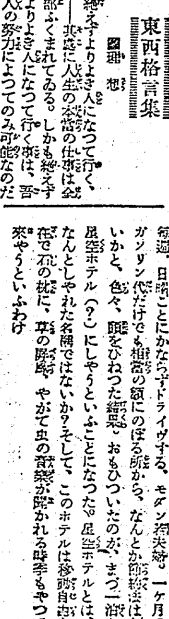 東西格言集
理想
絶えずよりよき人になつて行く、
其處に人生の本當の仕事は全
部ふくまれてゐる。しかも絶えず
よりよき人になつて行く事は、吾
人の努力によつてのみ可能なのだ
毎週、日曜ごとにかならずドライヴする。モダン夫婦。一ケ月
ガソリン代だけでも相當の額にのぼる所から、なんとか節約法は
いかと、色々、頭をひねつた結果。おもひついたのが、まづ一泊
星空ホテル(?)にしやうといふことになつた。星空ホテルとは
なんとしやれた名稱ではないか?そして、このホテルは移動自
在で石の枕に、草の屏風、やがて虫の音樂が聞かれる時季もやつ
來やうといふわけ